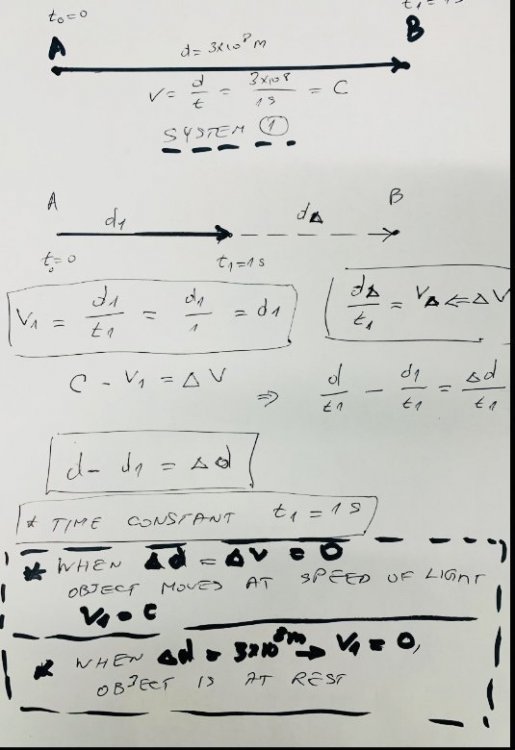 t₀=0
t₁=1s
A
B
d= 3x10⁸m
V= d/t = 3x10⁸/1s = C
SYSTEM ①
A
B
d₁
d∆
t₀=0
t₁=1s
V₁ = d₁/t₁ = d₁/1 = d₁
d∆/t₁ = V∆ ⇐ ∆V
C - V₁ = ∆V
⇒ d/t₁ - d₁/t₁ = ∆d/t₁
d - d₁ = ∆d
* TIME CONSTANT t₁ = 1s
* WHEN ∆d = ∆V = 0
OBJECT MOVES AT SPEED OF LIGHT
V₁ = C
* WHEN ∆d = 3x10⁸m → V₁ = 0,
OBJECT IS AT REST